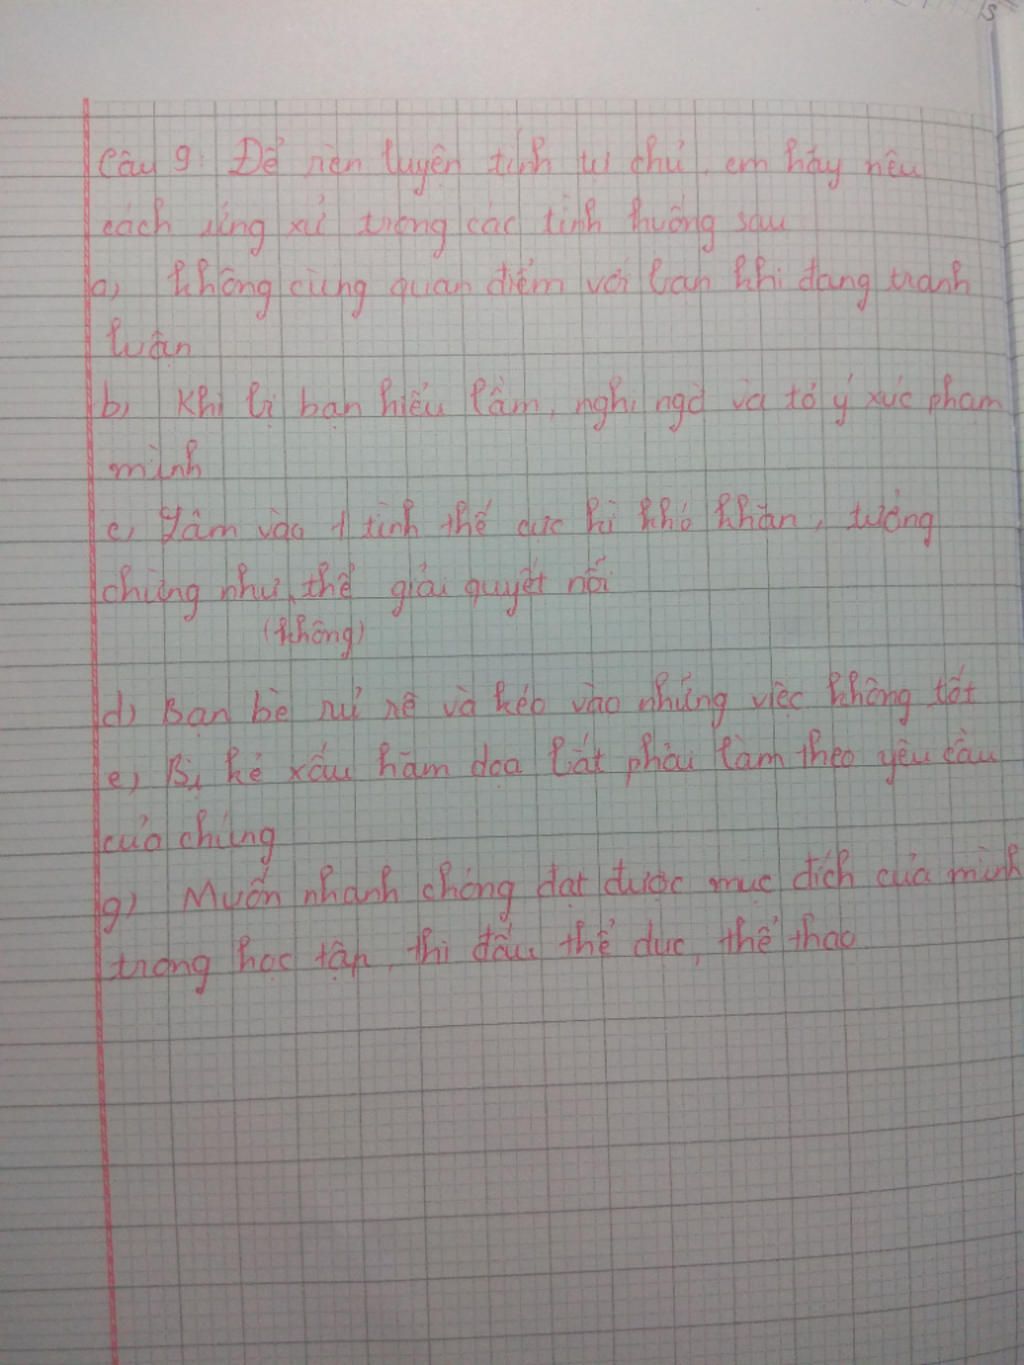 Câu 9: Để rèn luyện tính tự chủ, em hãy nêu
cách ứng xử trong các tình huống sau
a) Không cùng quan điểm với bạn khi đang tranh
luận
b) Khi bị bạn hiểu lầm, nghi ngờ và tỏ ý xúc phạm
mình
c) Lâm vào 1 tình thế cực kì khó khăn, tưởng
chừng như thể giải quyết nổi
(không)
d) Bạn bè rủ rê và kéo vào những việc không tốt
e) Bị kẻ xấu hăm dọa bắt phải làm theo yêu cầu
của chúng
g) Muốn nhanh chóng đạt được mục đích của mình
trong học tập, thi đấu thể dục, thể thao